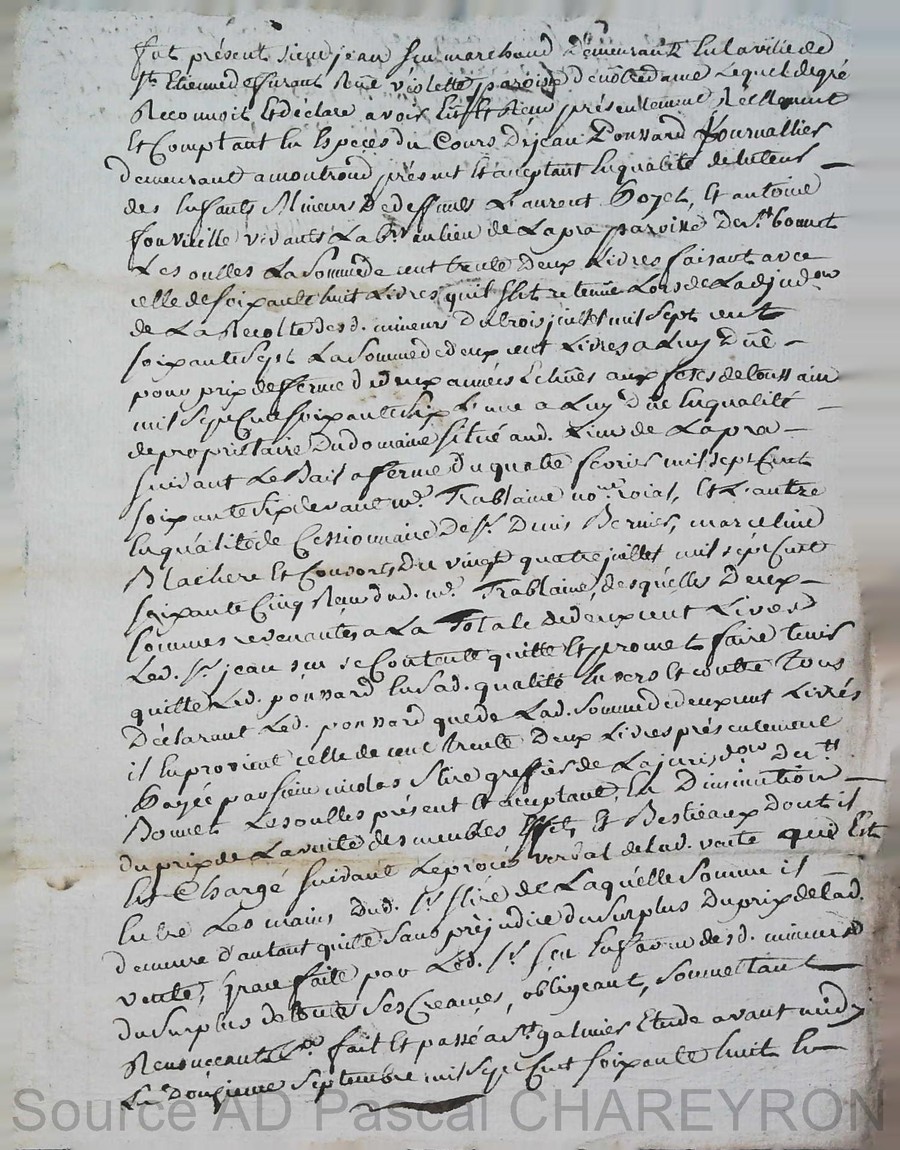 fut présent sieur jean seu marchand Demeurant En la ville de
St Etienne de furant Rue violette paroisse de nôtredame Lequel de gré
Reconnoit Et déclare avoir Eu Et Reçu présentement Réellement
Et Comptant En Espeçes du Cours De jean Ponsard Journallier
demeurant a montrond présent Et aceptant En qualité de tuteur
des Enfants Mineurs De deffunts Laurent Et antoine
fonvieille vivants au lieu de Lapra paroisse de St bonnet
Les oulles La Somme de cent trente Deux Livres faisant avec
celle de soixante huit Livres qu'il Lors de Ladjudon
de La Récolte desd. mineurs Du trois juillet mil Sept cent
soixante Sept La Somme de deux cent Livres a Luy Duë
pour prix de fferme de Deux années Echues aux fêtes de toussain
mil Sept Cent soixante Six L'une a Luy Duë En qualité
de propriétaire Du domaine Situé aud. Lieu de Lapra
suivant Le Bail a ferme Du quatre fevrier mil sept Cent
soixante Six devant me. Trablaine nore. roial, Et L'autre
En qualité de Cessionnaire De Sr. Denis Bernier, marceline
Blachere Et Consorts Du vingt quatre juillet mil sept Cent
soixante Cinq Reçu Dud. me. Trablaine, desquelles Deux
sommes revenantes a La Totale de deux cent Livres
Led. Sr. jean seu se Contente quitte Et promet faire tenir
quitte Led. ponsard En sad. qualité Envers Et contre Tous
Déclarant Led. ponsard que de Lad. Somme de deux cent Livres
il En provient celle de cent trente Deux Livres présentement
Payée par sieur nicolas Stire greffier de La jurisdon De St
Bonnet Les oulles présent Et aceptant, En Diminution
du prix de La vente des meubles Effets Et Bestieaux Dont il
Est Chargé suivant Le procès verbal de lad. vente qui Est
Entre Les mains Dud. Sr Stire de Laquelle Somme il
demeure d'autant quitte Sans préjudice du Surplus Du prix de Lad.
vente, faite par Led. Sr Seu En faveur desd. mineurs
du Surplus de touts Ses Creances, obligeant, Soumettant
Renonceant &a. fait Et passé a St. galmier Etude avant midy
Le Douzieme Septembre mil Sept Cent soixante huit En
Source AD Pascal CHAREYRON